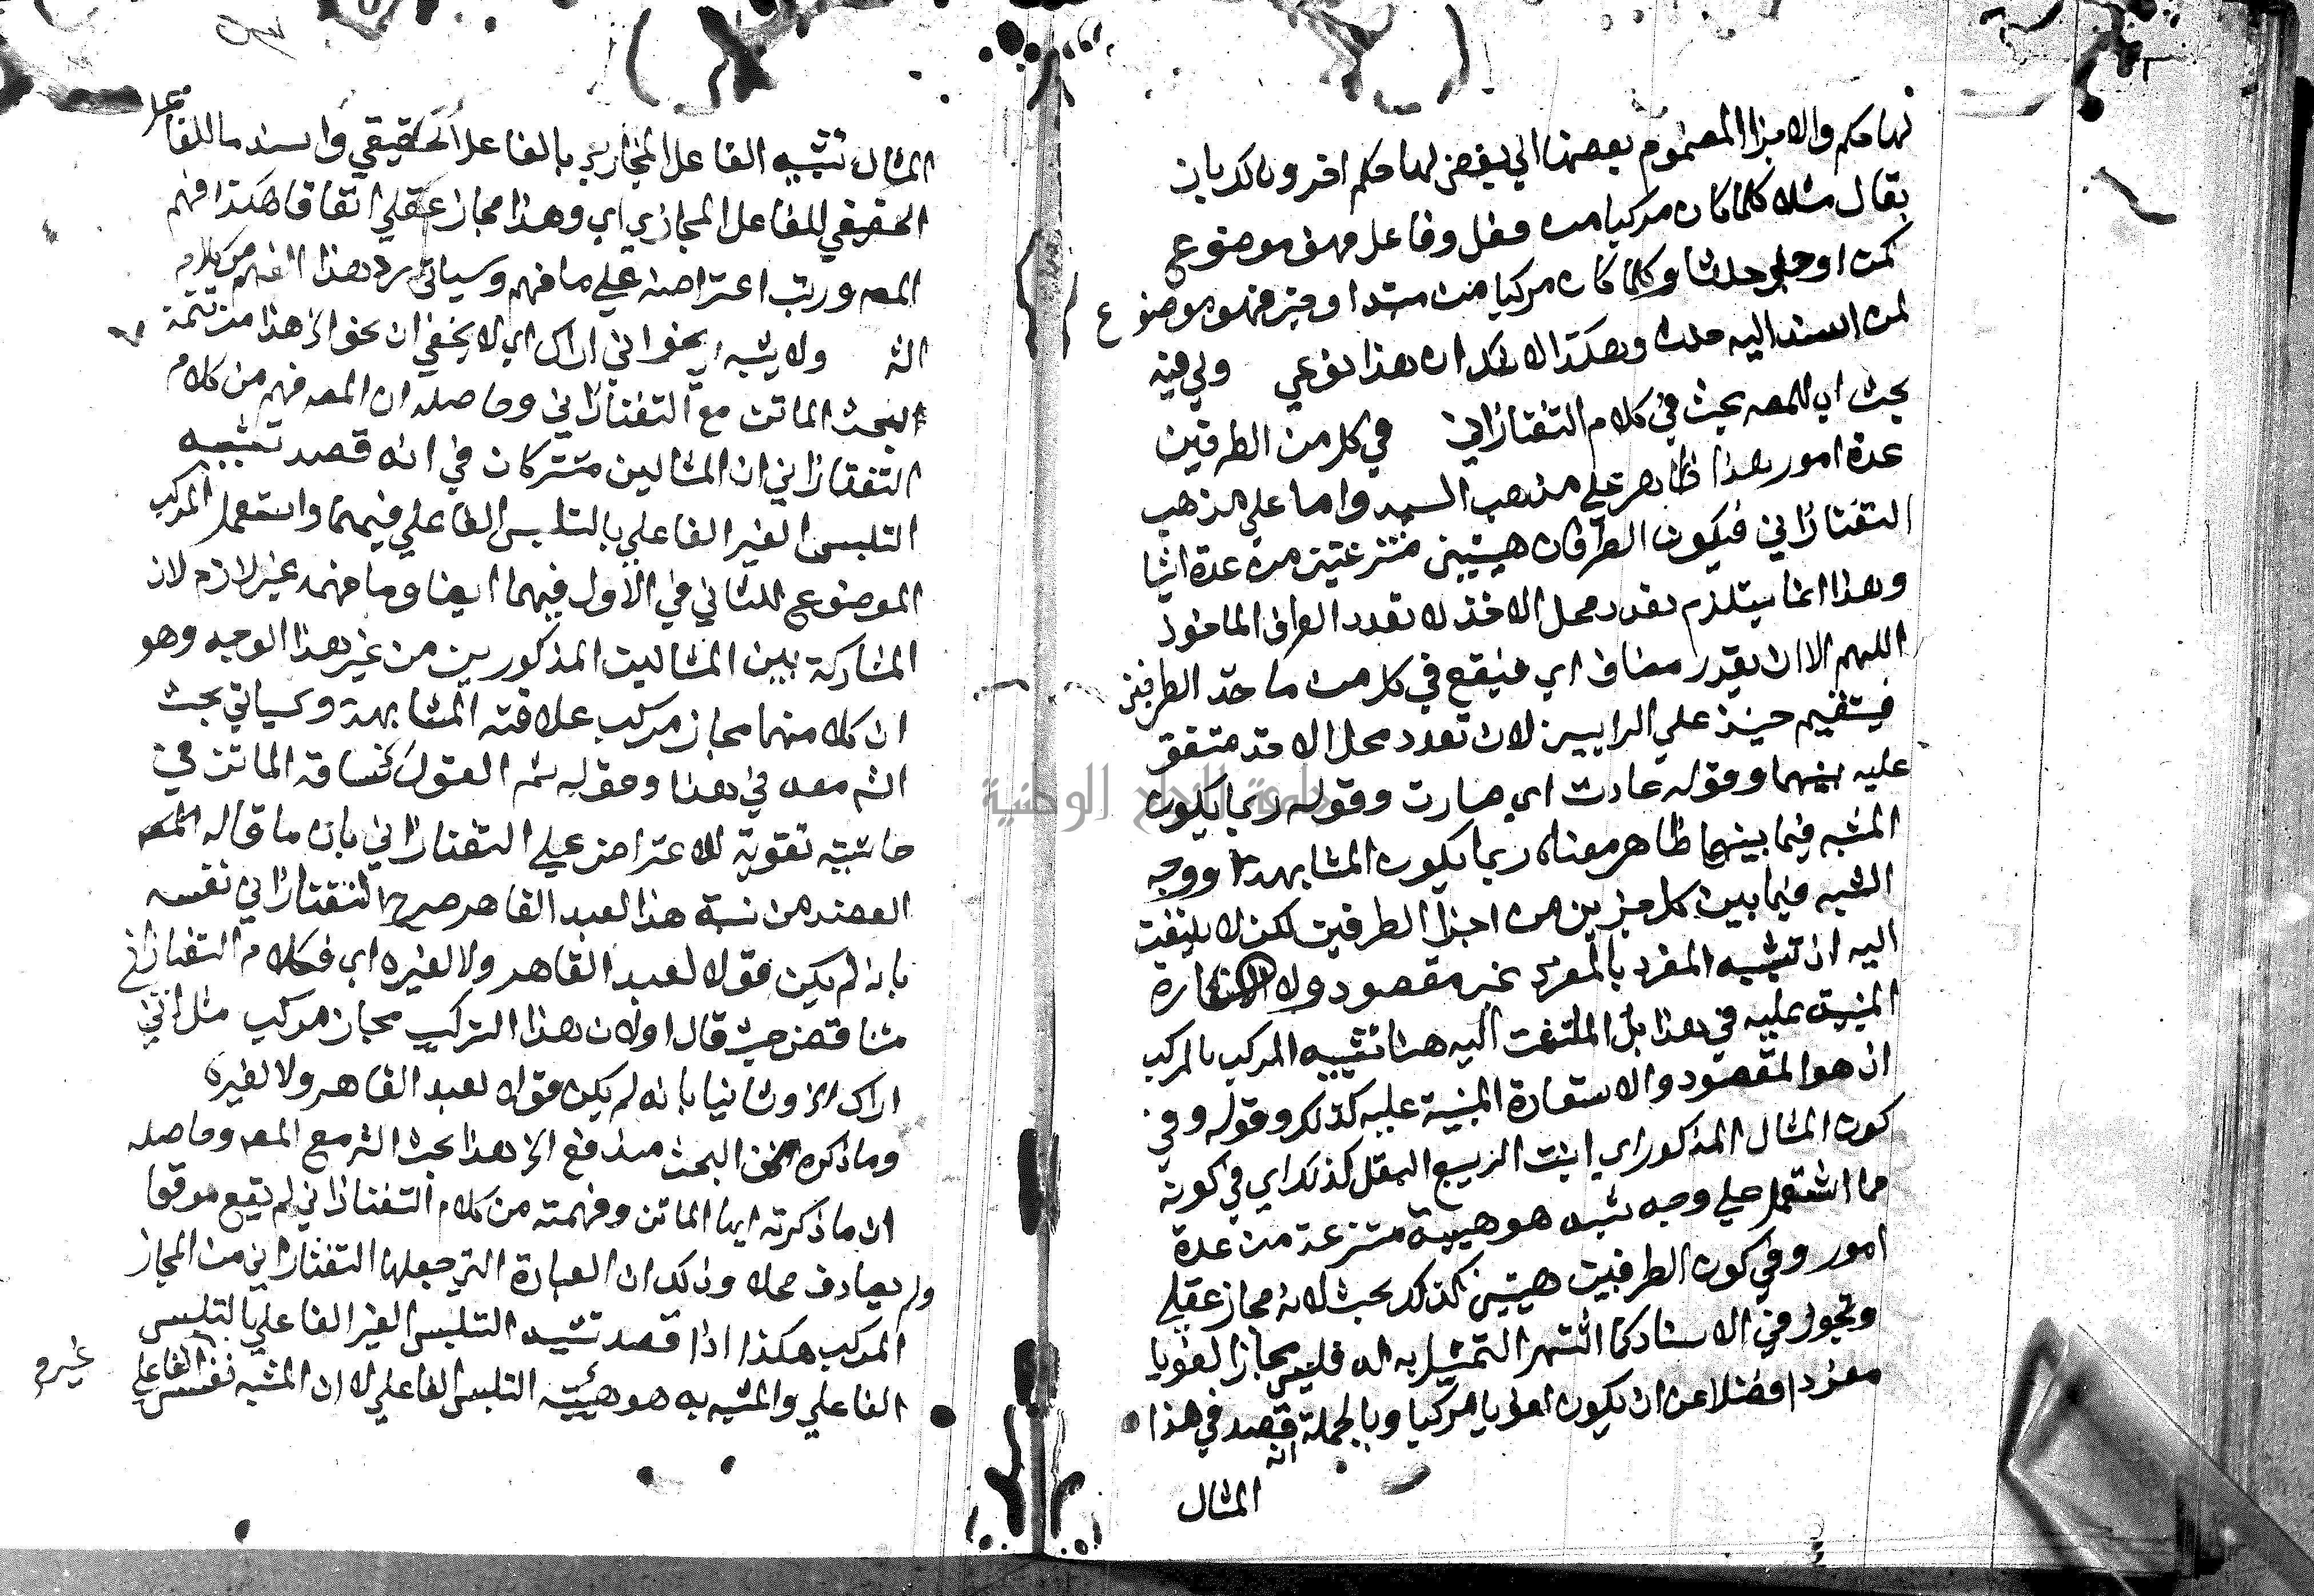 لها حكم والاجزا المضموم بعضها الي بعض لها حكم اخر وذلك بان
يقال مثلا كلما كان مركبا من فعل وفاعل فهو موضوع
لمن اوجد حدثا وكلما كان مركبا من مبتدا وخبر فهو موضوع
لمن اسند اليه حدث وهكذا لا يقال ان هذا نوعي ولي فيه
بحث اي للمص بحث في كلام التفتازاني في كل من الطرفين
عدة امور هذا ظاهر علي مذهب السيد واما علي مذهب
التفتازاني فيكون الطرفان هيئتين منتزعتين من عدة اشيا
وهذا انما يستلزم تعدد محل الاخذ لا تعدد المأخوذ
اللهم الا ان يقدر مضاف اي فيقع في كل من ماخذ الطرفين
فيستقيم حينئذ علي الرايين لان تعدد محل الاخذ متفق
عليه بينهما وقوله عادت اي صارت وقوله ربما يكون
المشبه فيما بينهما ظاهر معناه ربما يكون المشابهة ووجه
الشبه فيما بين كل جزين من اجزا الطرفين لكن لا يلتفت
اليه اذ تشبيه المفرد بالمفرد غير مقصود ولا الاستعارة
المبنية عليه في هذا بل الملتفت اليه هنا تشبيه المركب بالمركب
اذ هو المقصود والاستعارة المبنية عليه كذلك وقوله وفي
كون المثال المذكور اي انبت الربيع البقل كذلك اي في كونه
مما اشتمل علي وجه شبه هو هيئة منتزعة من عدة
امور وفي كون الطرفين هيئتين كذلك بحث لانه مجاز عقلي
وتجوز في الاسناد كما اشتهر التمثيل به له فليس مجازا لغويا
مفردا فضلا عن ان يكون لغويا مركبا وبالجملة انه قصد في هذا
المثال
المثال تشبيه الفاعل المجازي بالفاعل الحقيقي واسند ما للفاعل
الحقيقي للفاعل المجازي اي وهذا مجاز عقلي اتفاقا هكذا فهم
المص ورتب اعتراضه علي ما فهم وسياتي رد هذا الفهم من كلام
الش ولا يشبه نحو اني اراك اي لا يخفي ان نحو الخ هذا من تتمة
البحث الماتن مع التفتازاني وحاصله ان المص فهم من كلام
التفتازاني ان المثالين مشتركان في انه قصد تشبيه
التلبس الغير الفاعلي بالتلبس الفاعلي فيهما واستعمل المركب
الموضوع للثاني في الاول فيهما ايضا وما فهمه غير لازم لان
المشاركة بين المثالين المذكورين من غير هذا الوجه وهو
ان كلا منهما مجاز مركب علاقته المشابهة وسياتي بحث
الش معه في هذا وقوله ثم القول ساقه الماتن في
حاشيته تقوية للاعتراض علي التفتازاني بان ما قاله المص
العضد من نسبة هذا لعبد القاهر صرح التفتازاني نفسه
بانه لم يكن قولا لعبد القاهر ولا لغيره اي فكلام التفتازاني
متناقض حيث قال اولا ان هذا التركيب مجاز مركب مثل اني
اراك الخ وثانيا بانه لم يكن قولا لعبد القاهر ولا لغيره
وما ذكره من البحث مندفع الخ هذا بحث الش مع المص وحاصله
ان ما ذكرته ايها الماتن وفهمته من كلام التفتازاني لم يقع موقعا
ولم يصادف محلا وذلك ان العبارة التي جعلها التفتازاني من المجاز
المركب هكذا اذا قصد تشبيه التلبس الغير الفاعلي بالتلبس
الفاعلي والمشبه به هو هيئة التلبس الفاعلي لا ان المشبه نفس الفاعلي
جامعة النجاح الوطنية